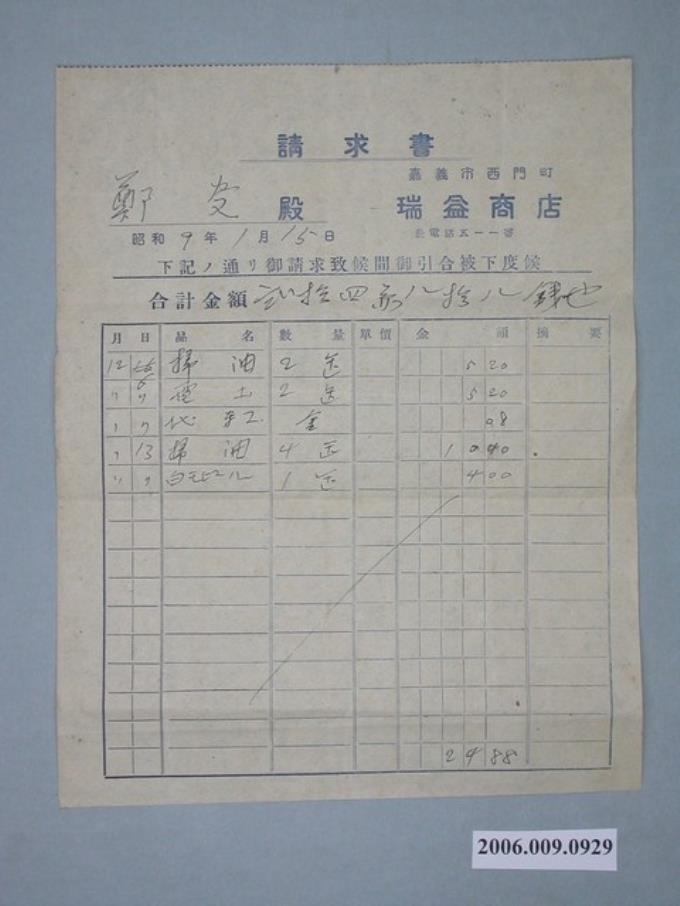 請求書
嘉義市西門町
鄭 殿
瑞益商店
昭和9年1月15日
長電話五一一番
下記ノ通リ御請求致候間御引合被下度候
合計金額 弐拾四円八拾八錢也
月 日 品名 數量 單價 金額 摘要
12 掃油 2 缶 5 20
〃 〃 電土 2 缶 5 20
〃 〃 金 08
〃 13 掃油 4 缶 10 40
〃 〃 白モビール 1 缶 4 00
24 88
2006.009.0929